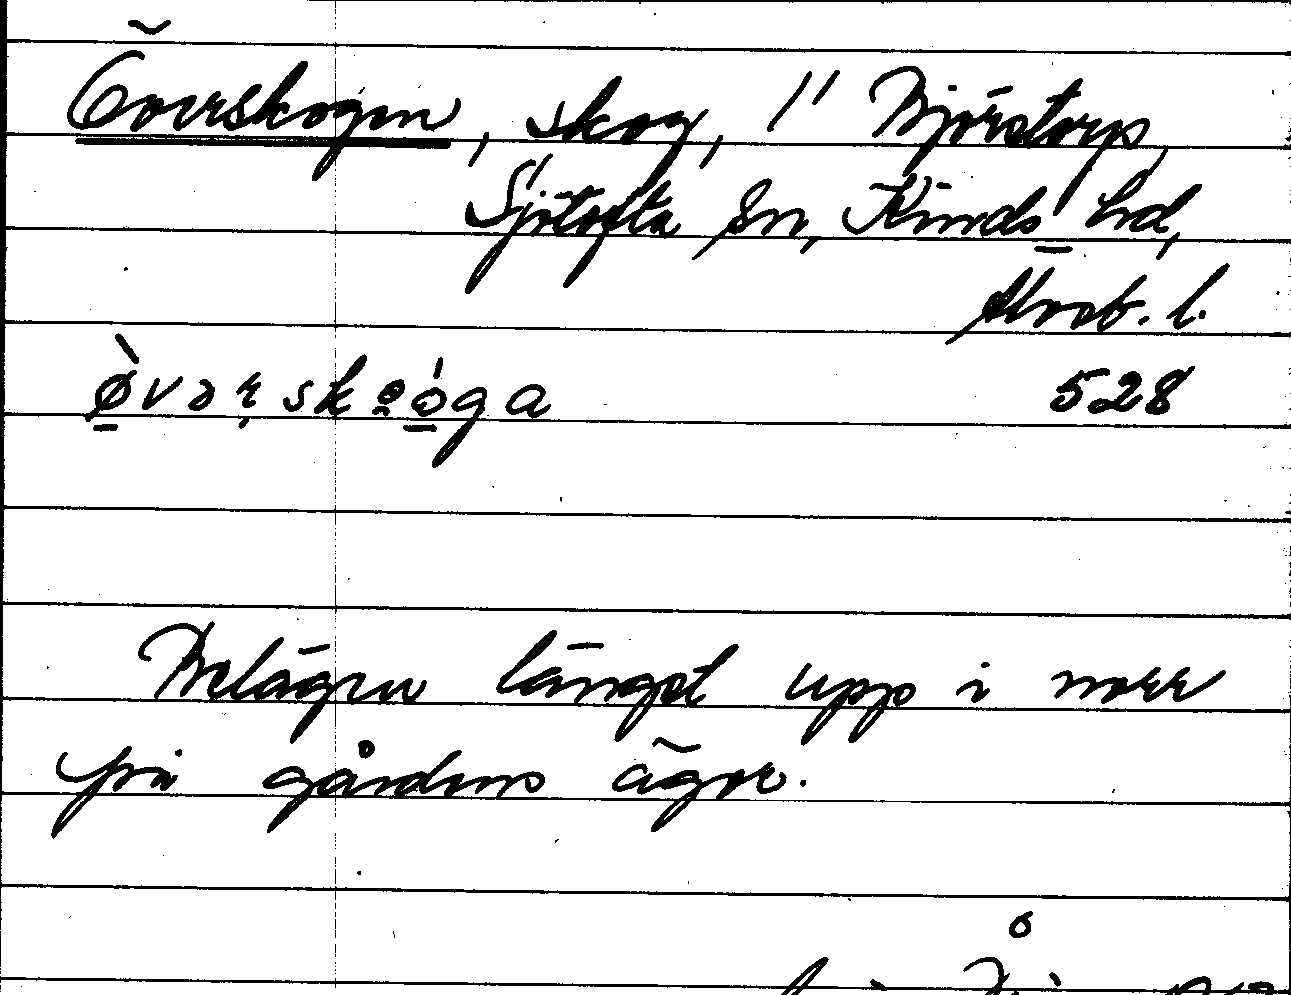 Överskogen, skog, 1" Björstorp,
Sjötofta sn, Kinds hd,
Älvsb. l.
øvərskoga 528
Belägen längst upp i norr
på gårdens ägor.